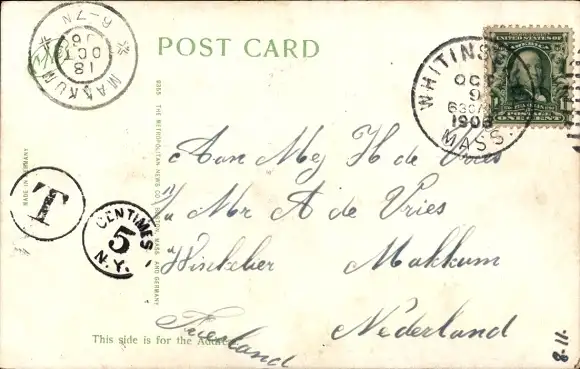 POST CARD
MAKKUM
6-7N
18
OCT
06
WHITINS
OCT
9
630A
1906
MASS.
UNITED STATES OF AMERICA
POSTAGE
ONE CENT
T
CENTIMES
5
N.Y.
MADE IN GERMANY
9355 THE METROPOLITAN NEWS CO., BOSTON, MASS. AND GERMANY
Aan Mej H de Vries
p/a Mr A de Vries
Winkelier Makkum
Friesland Nederland
This side is for the Address
8-11.